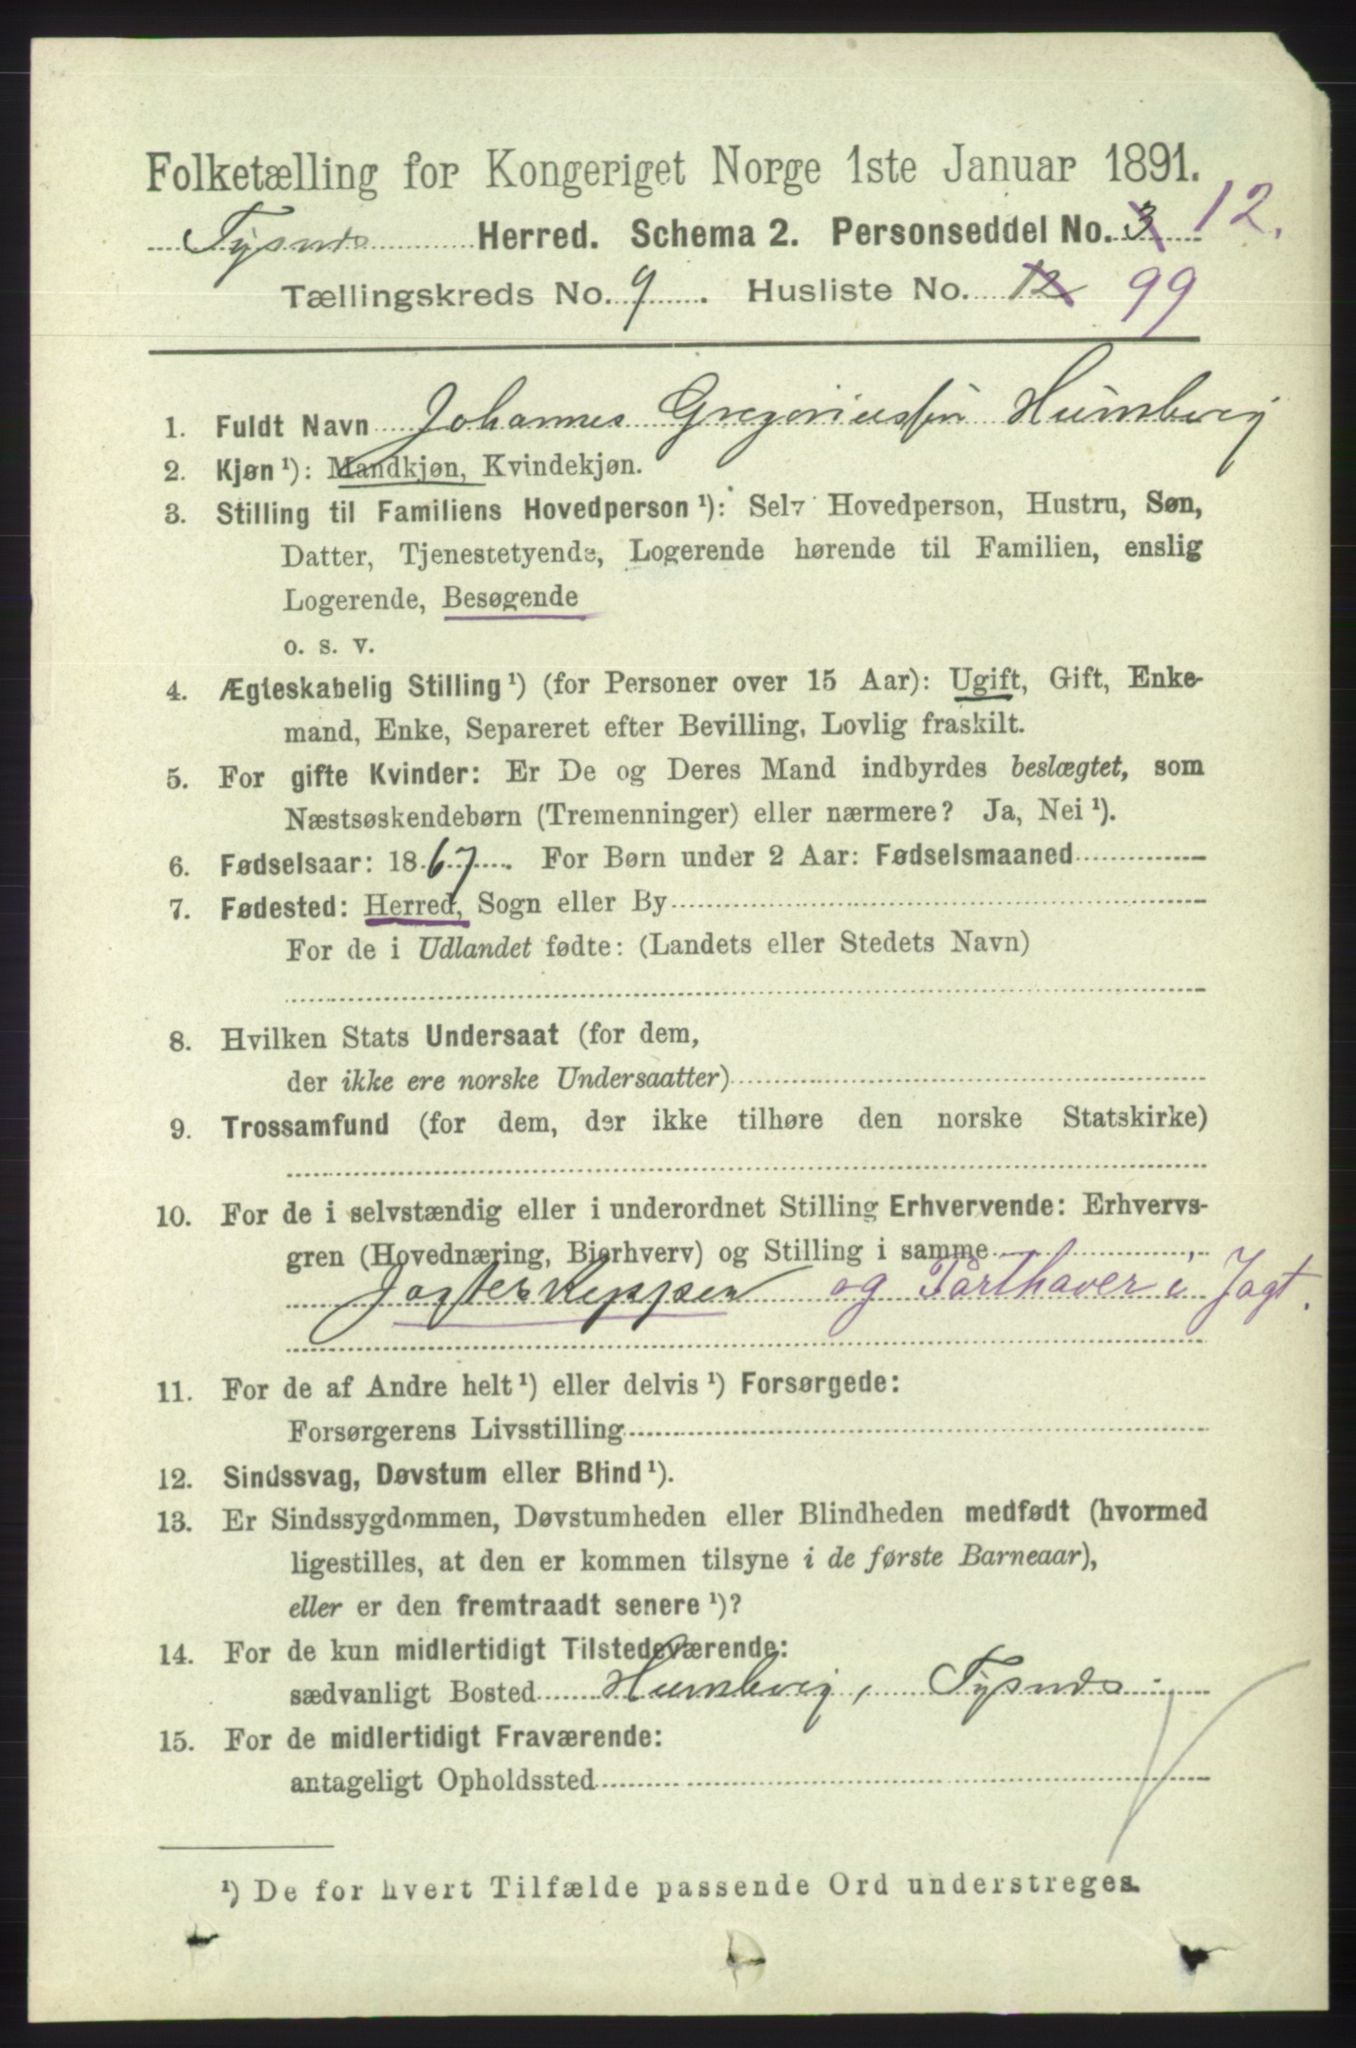 Folketælling for Kongeriget Norge 1ste Januar 1891.
Tysnæs Herred. Schema 2. Personseddel No. 3 12.
Tællingskreds No. 9. Husliste No. 12 99
1. Fuldt Navn Johannes Gregoriussøn Humlevig
2. Kjøn ¹): Mandkjøn, Kvindekjøn.
3. Stilling til Familiens Hovedperson ¹): Selv Hovedperson, Hustru, Søn,
Datter, Tjenestetyende, Logerende hørende til Familien, enslig
Logerende, Besøgende
o. s. v.
4. Ægteskabelig Stilling ¹) (for Personer over 15 Aar): Ugift, Gift, Enke-
mand, Enke, Separeret efter Bevilling, Lovlig fraskilt.
5. For gifte Kvinder: Er De og Deres Mand indbyrdes beslægtet, som
Næstsøskendebørn (Tremenninger) eller nærmere? Ja, Nei ¹).
6. Fødselsaar: 1867. For Børn under 2 Aar: Fødselsmaaned
7. Fødested: Herred, Sogn eller By
For de i Udlandet fødte: (Landets eller Stedets Navn)
8. Hvilken Stats Undersaat (for dem,
der ikke ere norske Undersaatter)
9. Trossamfund (for dem, der ikke tilhøre den norske Statskirke)
10. For de i selvstændig eller i underordnet Stilling Erhvervende: Erhvervs-
gren (Hovednæring, Bierhverv) og Stilling i samme
Jagteskipper og Parthaver i Jagt.
11. For de af Andre helt ¹) eller delvis ¹) Forsørgede:
Forsørgerens Livsstilling
12. Sindssvag, Døvstum eller Blind ¹).
13. Er Sindssygdommen, Døvstumheden eller Blindheden medfødt (hvormed
ligestilles, at den er kommen tilsyne i de første Barneaar),
eller er den fremtraadt senere ¹)?
14. For de kun midlertidigt Tilstedeværende:
sædvanligt Bosted Humlevig, Tysnæs.
15. For de midlertidigt Fraværende:
antageligt Opholdssted
¹) De for hvert Tilfælde passende Ord understreges.